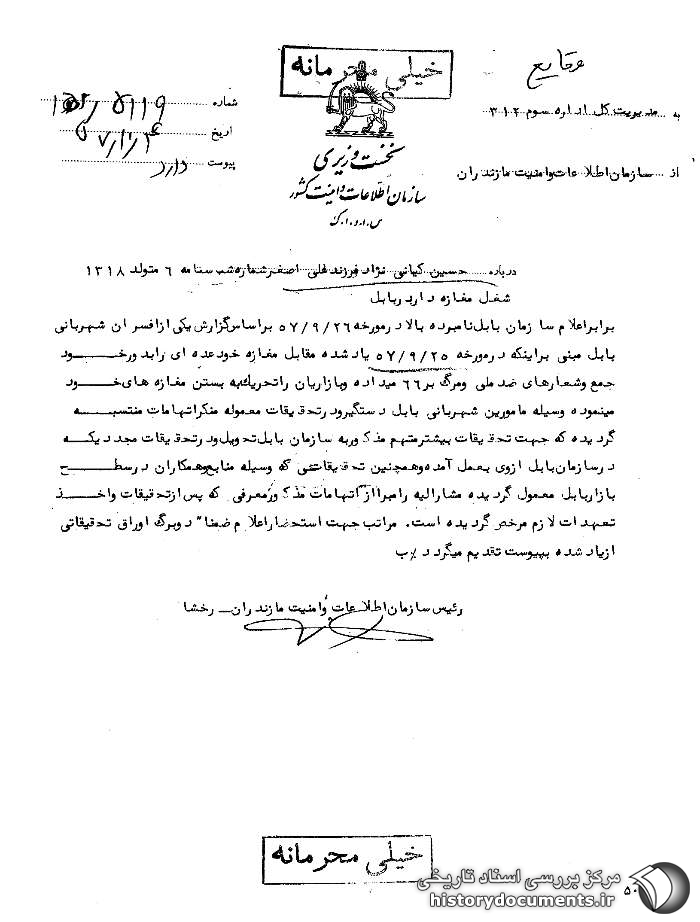 خیلی محرمانه
وقایع
به مدیریت کل اداره سوم ۳۱۲
شماره ۵۱۱۹/
تاریخ
پیوست دارد
از سازمان اطلاعات و امنیت مازندران
نخست وزیری
سازمان اطلاعات و امنیت کشور
س.ا.و.ا.ک
درباره حسین کیانی نژاد فرزند علی اصغر شماره شناسنامه ۶ متولد ۱۳۱۸
شغل مغازه دار در بابل
برابر اعلام سازمان بابل نامبرده بالا در مورخه ۵۷/۹/۲۶ بر اساس گزارش یکی از افسران شهربانی
بابل مبنی بر اینکه در مورخه ۵۷/۹/۲۵ یاد شده مقابل مغازه خود عده ای را بدور خود
جمع و شعارهای ضد ملی و مرگ بر ۶۶ میداده و بازاریان را تحریک به بستن مغازه های خود
مینموده وسیله مامورین شهربانی بابل دستگیر و در تحقیقات معموله منکر اتهامات منتسبه
گردیده که جهت تحقیقات بیشتر متهم مذکور به سازمان بابل تحویل و در تحقیقات مجدد یکه
در سازمان بابل از وی بعمل آمده و همچنین تحقیقاتی که وسیله منابع و همکاران در سطح
بازار بابل معمول گردیده مشارالیه را مبرا از اتهامات مذکور معرفی که پس از تحقیقات و اخذ
تعهدات لازم مرخص گردیده است. مراتب جهت استحضار اعلام ضمنا" دو برگ اوراق تحقیقاتی
از یاد شده به پیوست تقدیم میگردد %ب
رئیس سازمان اطلاعات و امنیت مازندران - رخشا
خیلی محرمانه
مرکز بررسی اسناد تاریخی
historydocuments.ir
۵۰